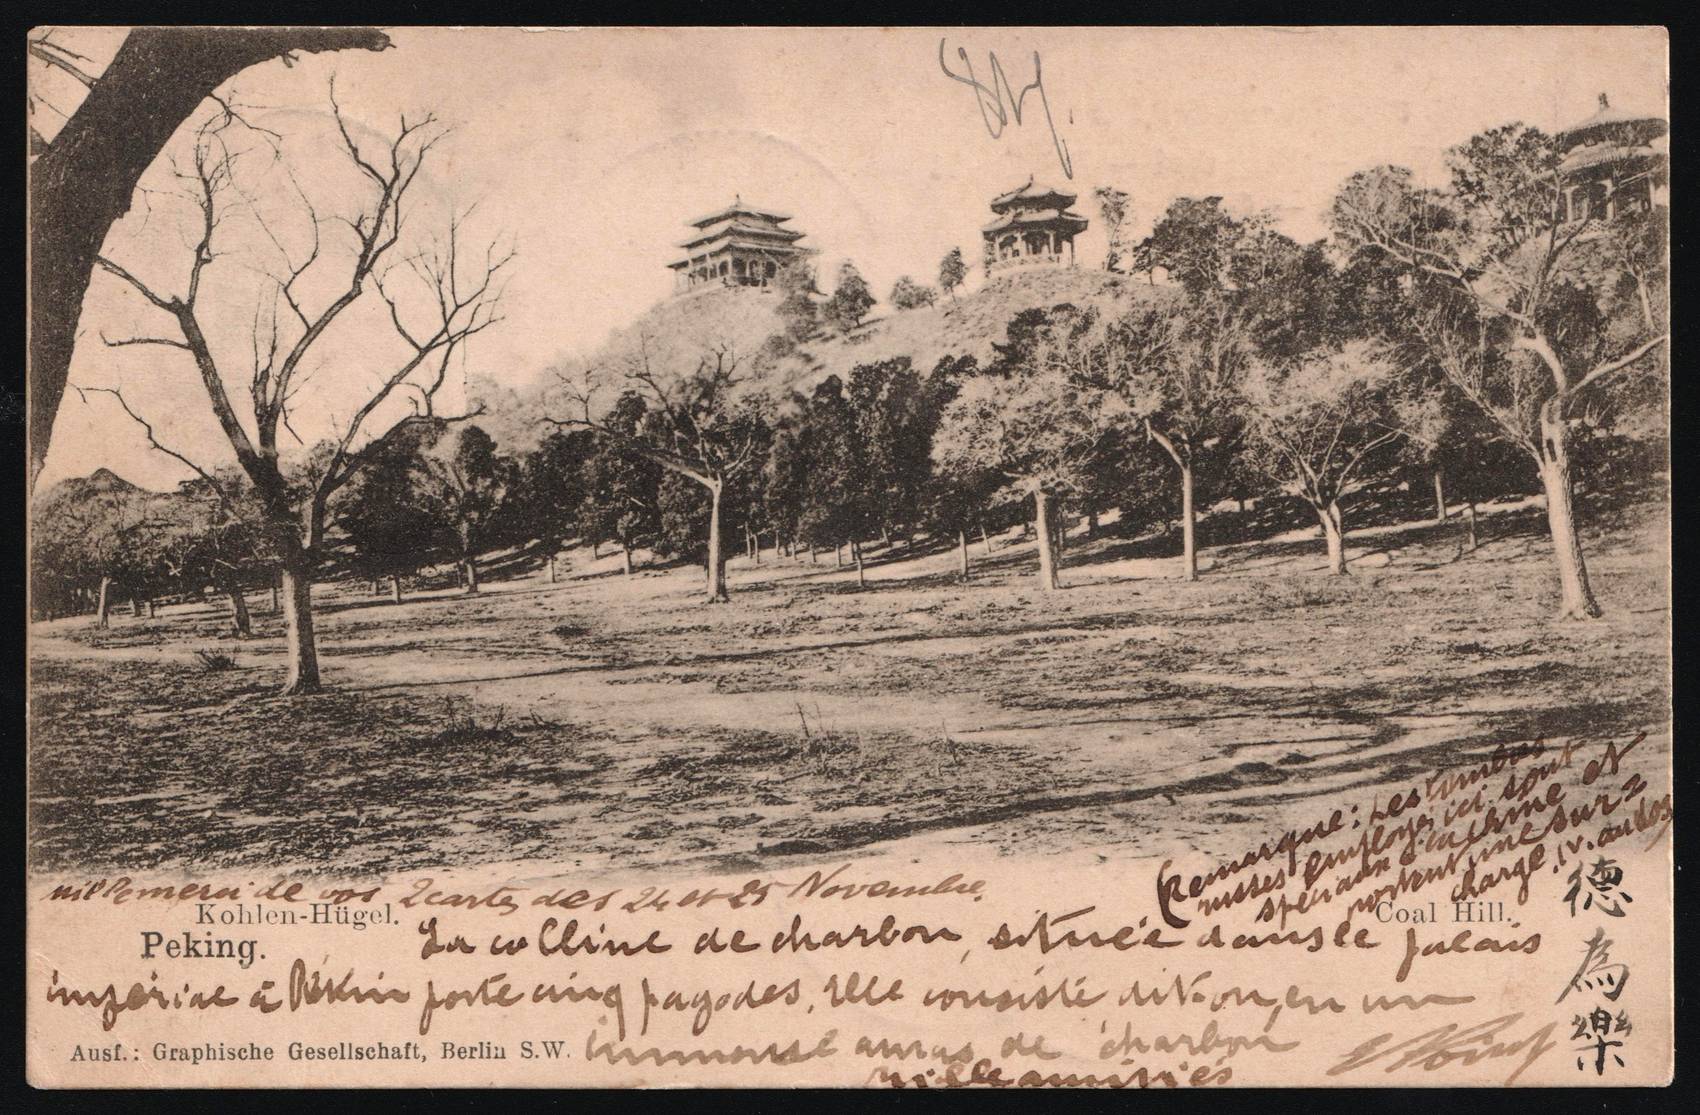 Remarque: Les timbres
russes employés ici sont
spéciaux à la Chine et
portent une sur=
charge. (v. au dos
mille merci de vos 2 cartes des 24 et 25 Novembre.
Kohlen-Hügel.
Coal Hill.
Peking.
La colline de charbon, située dans le palais
impérial à Pékin porte cinq pagodes. Elle consiste dit-on, en un
immense amas de charbon
Ausf.: Graphische Gesellschaft, Berlin S.W.
mille amitiés
德
為
樂